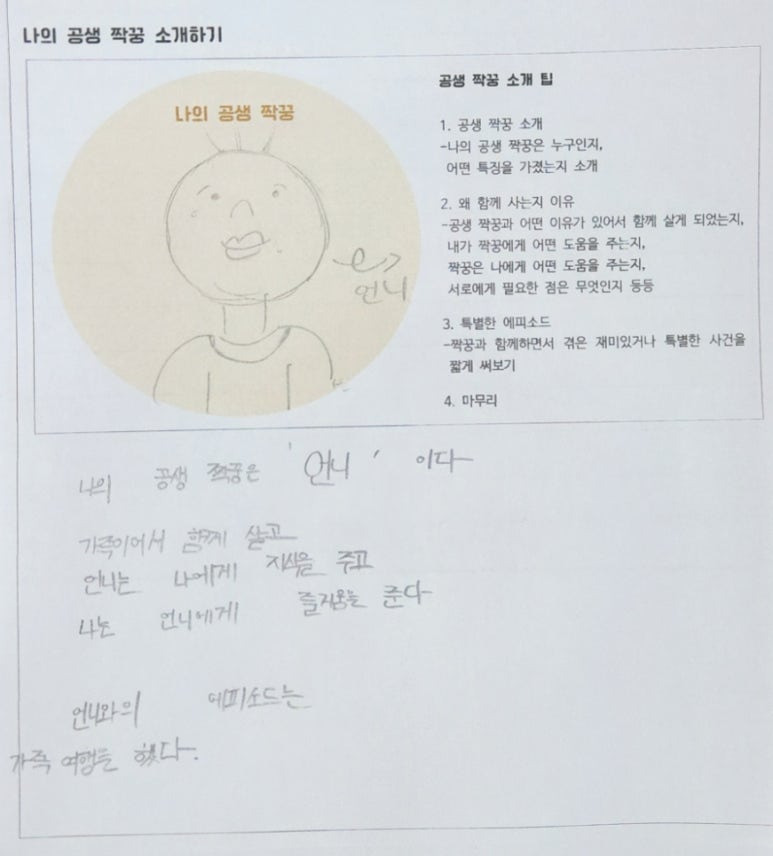 나의 공생 짝꿍 소개하기
나의 공생 짝꿍
언니
공생 짝꿍 소개 팁
1. 공생 짝꿍 소개
-나의 공생 짝꿍은 누구인지,
어떤 특징을 가졌는지 소개
2. 왜 함께 사는지 이유
-공생 짝꿍과 어떤 이유가 있어서 함께 살게 되었는지,
내가 짝꿍에게 어떤 도움을 주는지,
짝꿍은 나에게 어떤 도움을 주는지,
서로에게 필요한 점은 무엇인지 등등
3. 특별한 에피소드
-짝꿍과 함께하면서 겪은 재미있거나 특별한 사건을
짧게 써보기
4. 마무리
나의 공생 짝꿍은 '언니' 이다
가족이어서 함께 살고
언니는 나에게 지식을 주고
나는 언니에게 즐거움을 준다
언니와의 에피소드는
가족 여행을 했다.